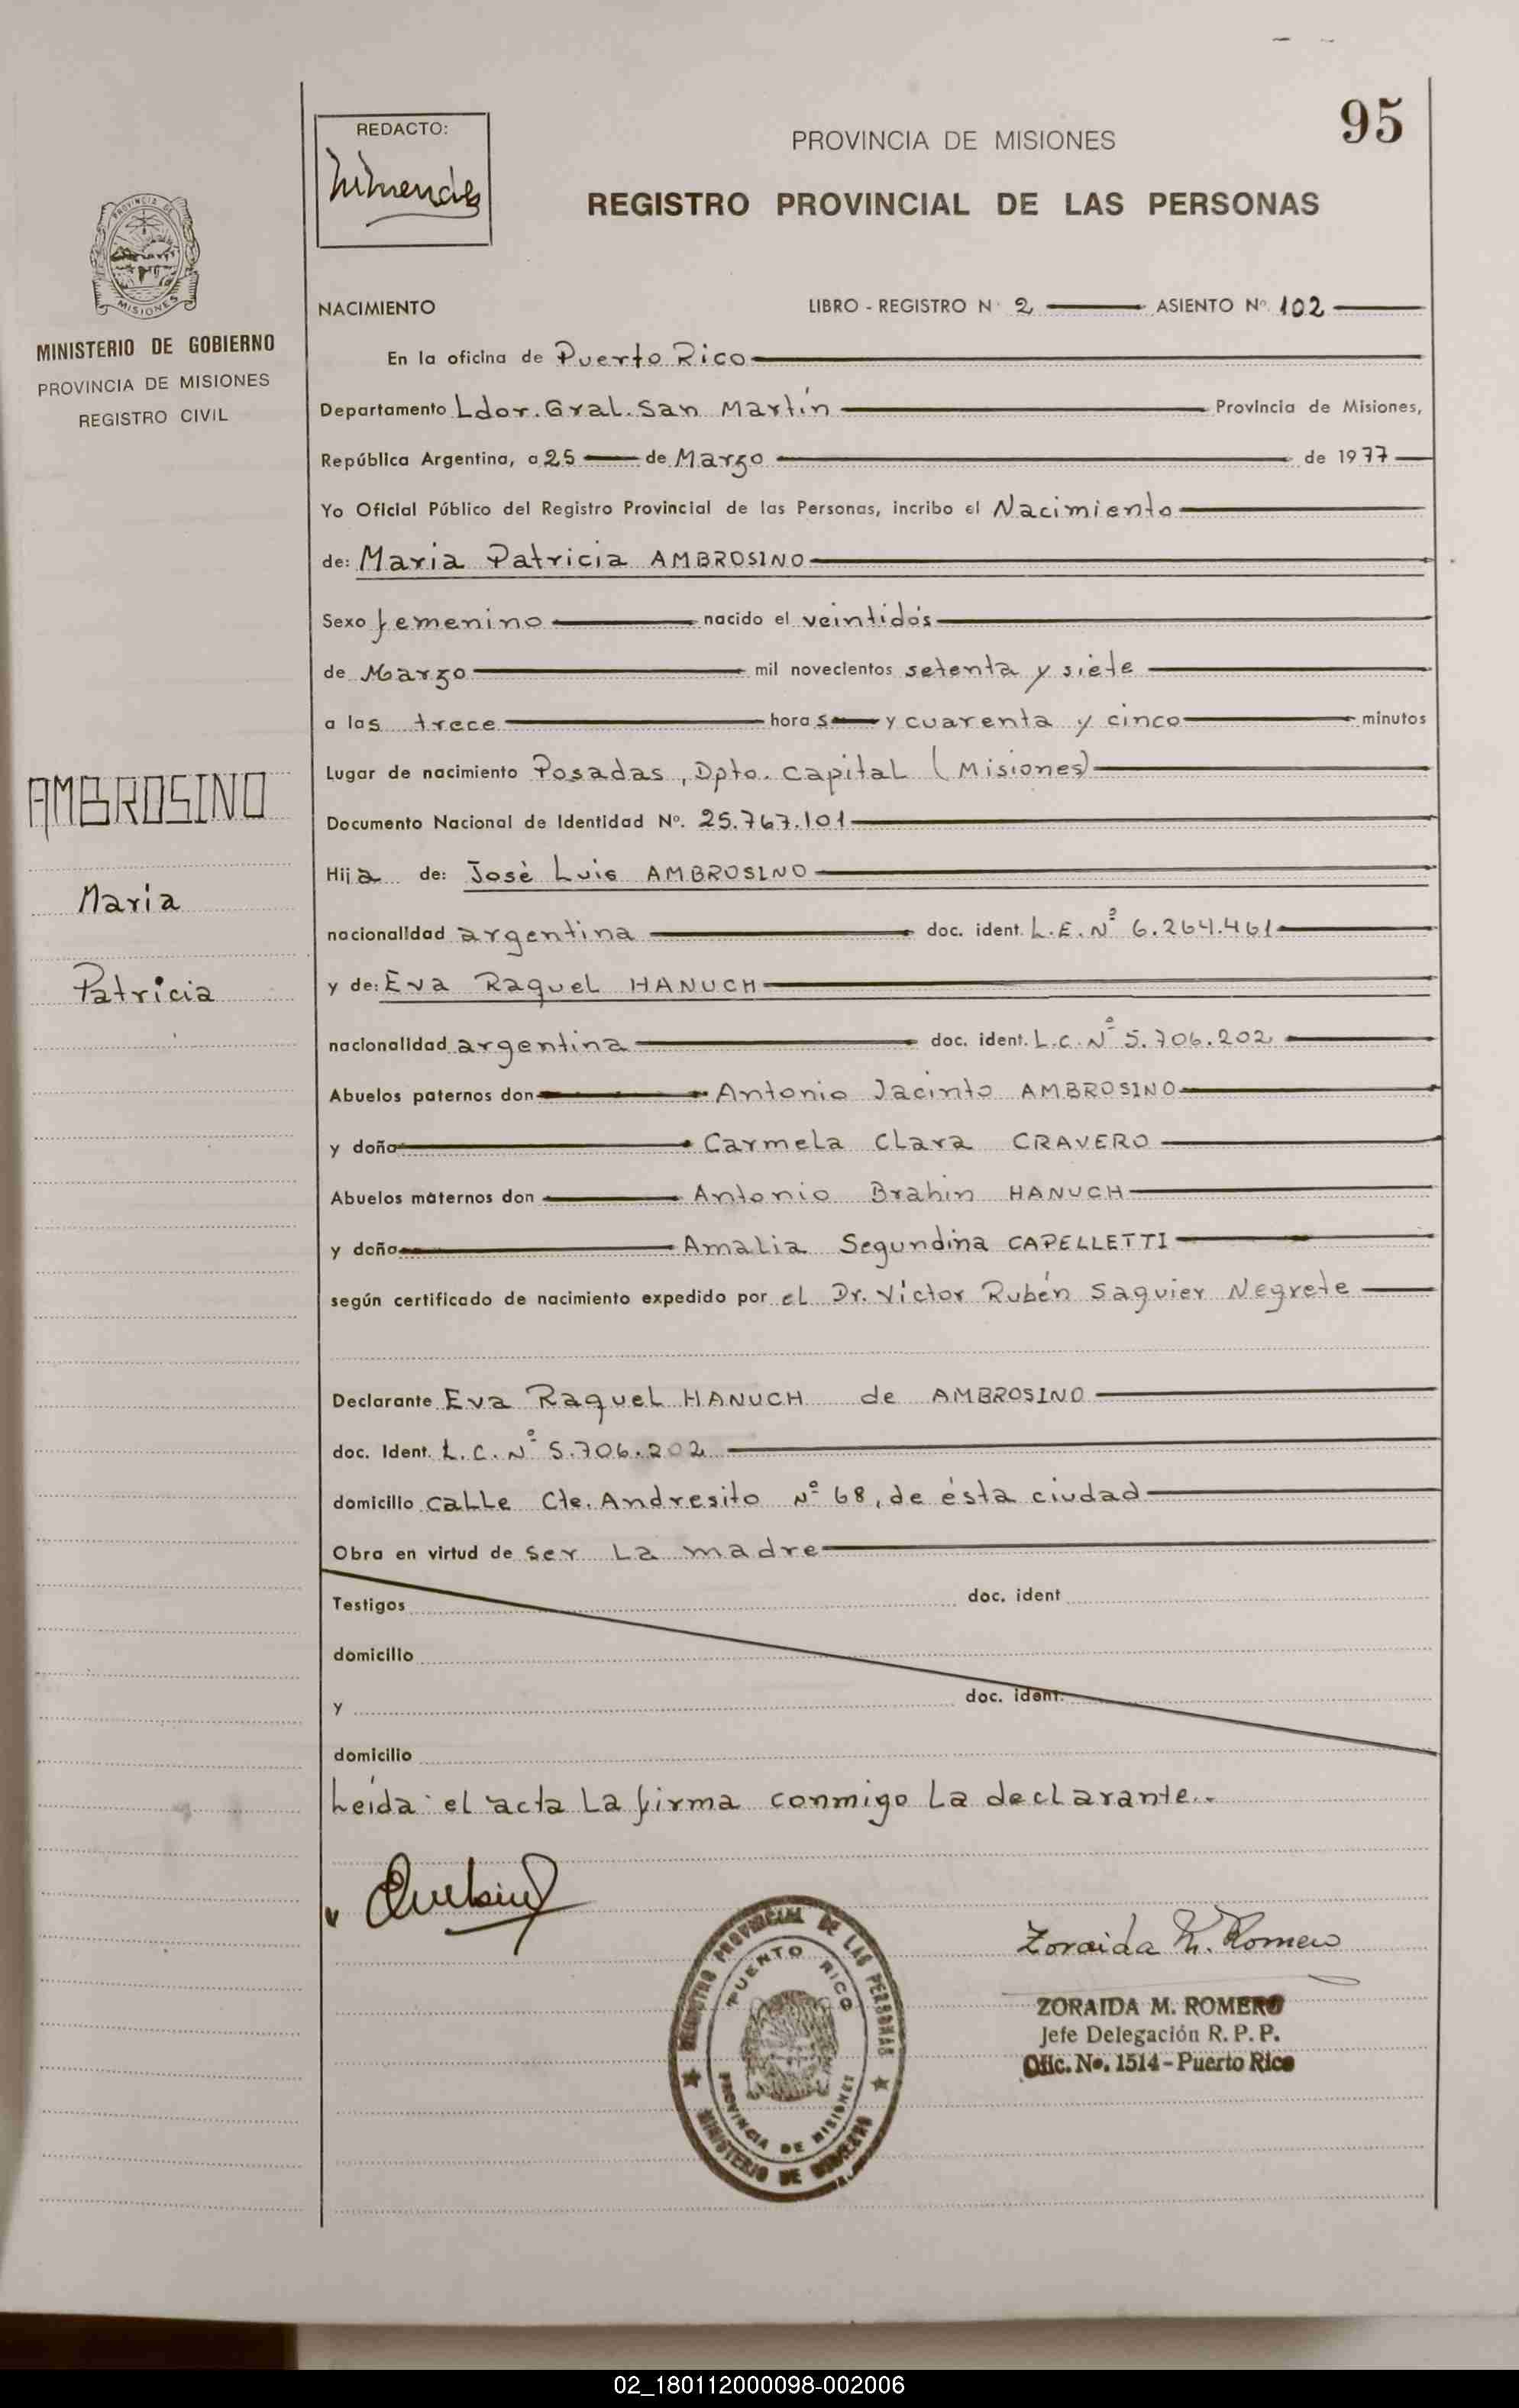 95
REDACTO:
PROVINCIA DE MISIONES
REGISTRO PROVINCIAL DE LAS PERSONAS
PROVINCIA DE
MISIONES
MINISTERIO DE GOBIERNO
PROVINCIA DE MISIONES
REGISTRO CIVIL
AMBROSINO
Maria
Patricia
NACIMIENTO LIBRO - REGISTRO Nº 2 ASIENTO Nº 102
En la oficina de Puerto Rico
Departamento Ldor. Gral. San Martín Provincia de Misiones,
República Argentina, a 25 de Marzo de 1977
Yo Oficial Público del Registro Provincial de las Personas, incribo el Nacimiento
de: Maria Patricia AMBROSINO
Sexo femenino nacido el veintidós
de Marzo mil novecientos setenta y siete
a las trece horas y cuarenta y cinco minutos
Lugar de nacimiento Posadas, Dpto. Capital (Misiones)
Documento Nacional de Identidad Nº. 25.767.101
Hija de: José Luis AMBROSINO
nacionalidad argentina doc. ident. L.E. Nº 6.264.461
y de: Eva Raquel HANUCH
nacionalidad argentina doc. ident. L.C. Nº 5.706.202
Abuelos paternos don Antonio Jacinto AMBROSINO
y doña Carmela Clara CRAVERO
Abuelos maternos don Antonio Brahin HANUCH
y doña Amalia Segundina CAPELLETTI
según certificado de nacimiento expedido por el Dr. Víctor Rubén Saguier Negrete
Declarante Eva Raquel HANUCH de AMBROSINO
doc. Ident. L.C. Nº 5.706.202
domicilio calle Cte. Andresito Nº 68, de ésta ciudad
Obra en virtud de ser La madre
Testigos doc. ident
domicilio
y doc. ident.
domicilio
Leída el acta La firma conmigo La declarante..
Zoraida M. Romero
ZORAIDA M. ROMERO
Jefe Delegación R. P. P.
Ofic. No. 1514 - Puerto Rico
REGISTRO PROVINCIAL DE LAS PERSONAS
PUERTO RICO
PROVINCIA DE MISIONES
MINISTERIO DE GOBIERNO
02_180112000098-002006